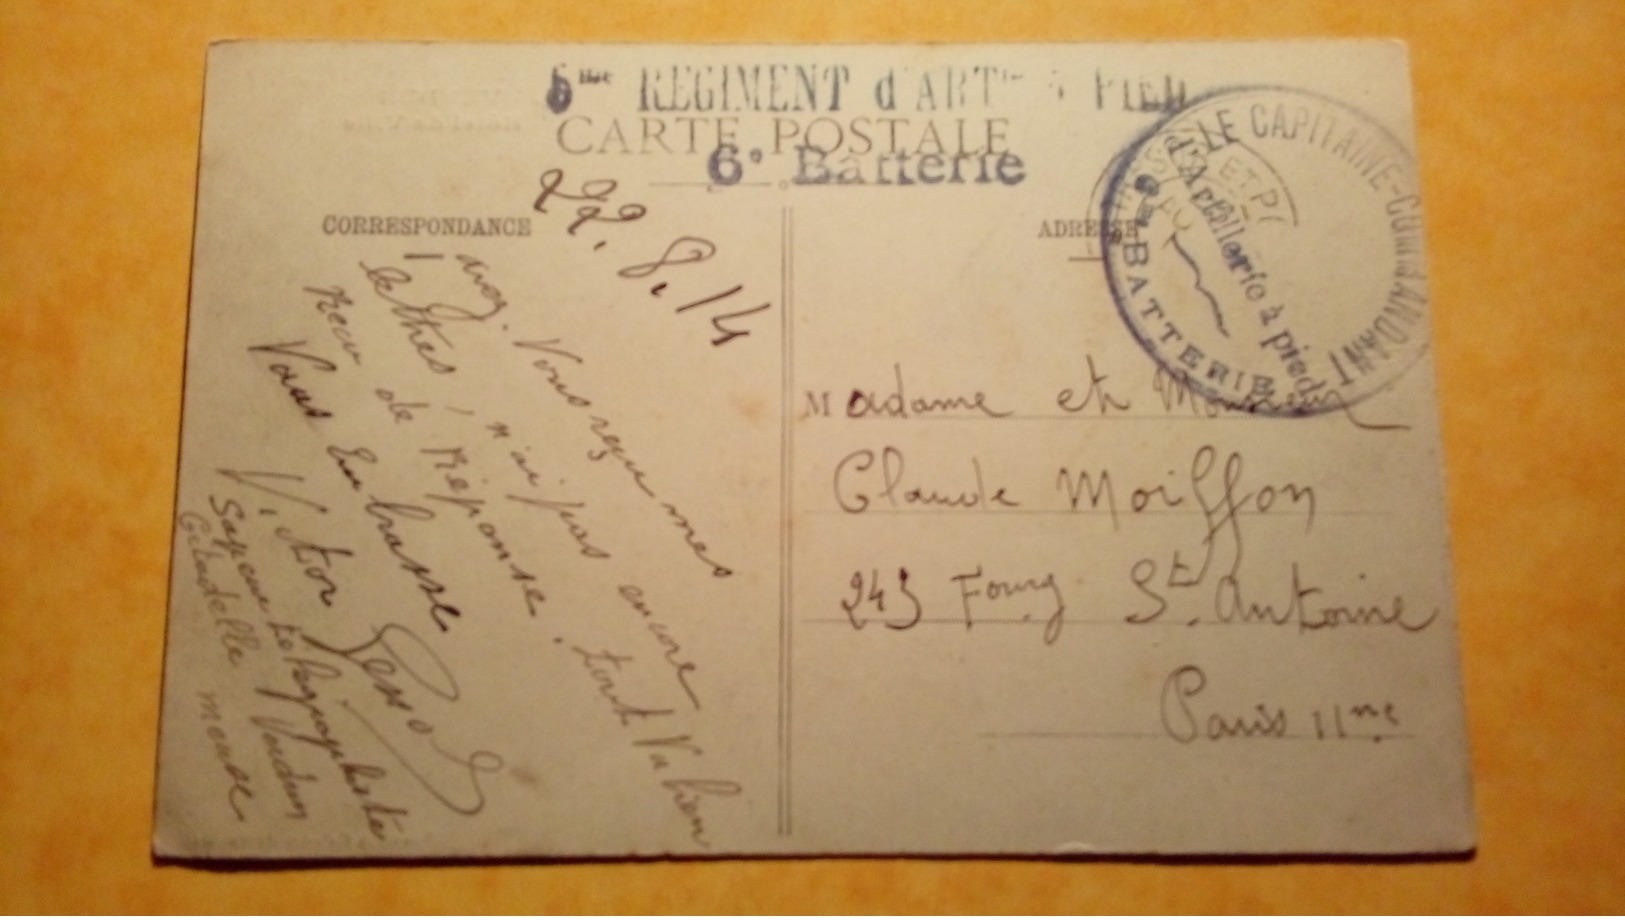 5me REGIMENT d'ARTie à PIED
CARTE POSTALE
6e Batterie
CORRESPONDANCE
ADRESSE
LE CAPITAINE-COMMANDANT
d'Artillerie à pied
BATTERIE
22.8.14
avez-Vous reçu mes
lettres, n'ai pas encore
recu de Réponse. tout Va bien
Vous Embrasse
Victor
Sapeur télégraphiste
Citadelle Verdun
meuse
Madame et Monsieur
Claude Moiffon
243 Foug St. Antoine
Paris 11me